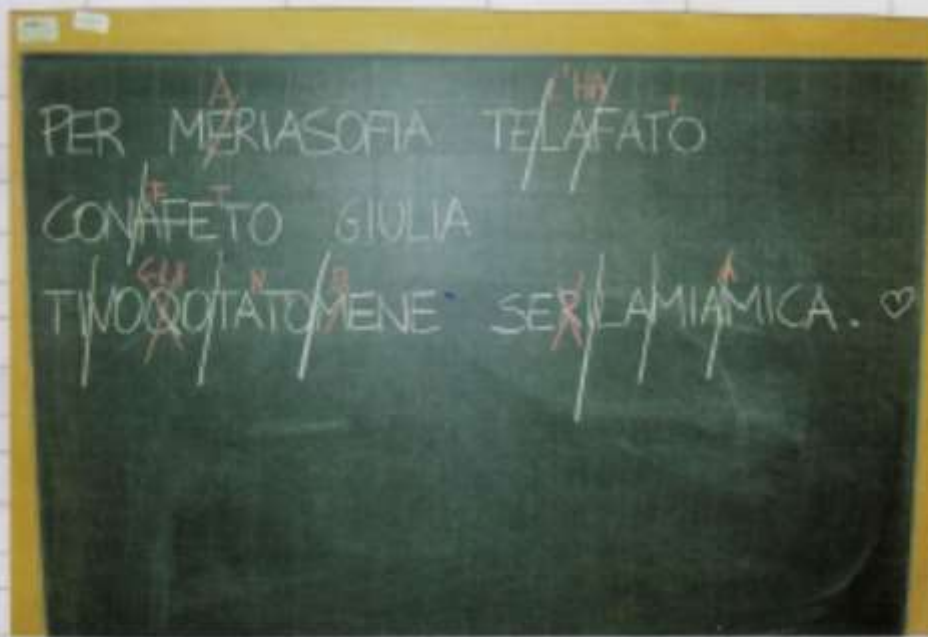 PER MERIASOFIA TELAFATO
CONAFETO GIULIA
TIVOQOTATOMENE SERILAMIAMICA. ♡